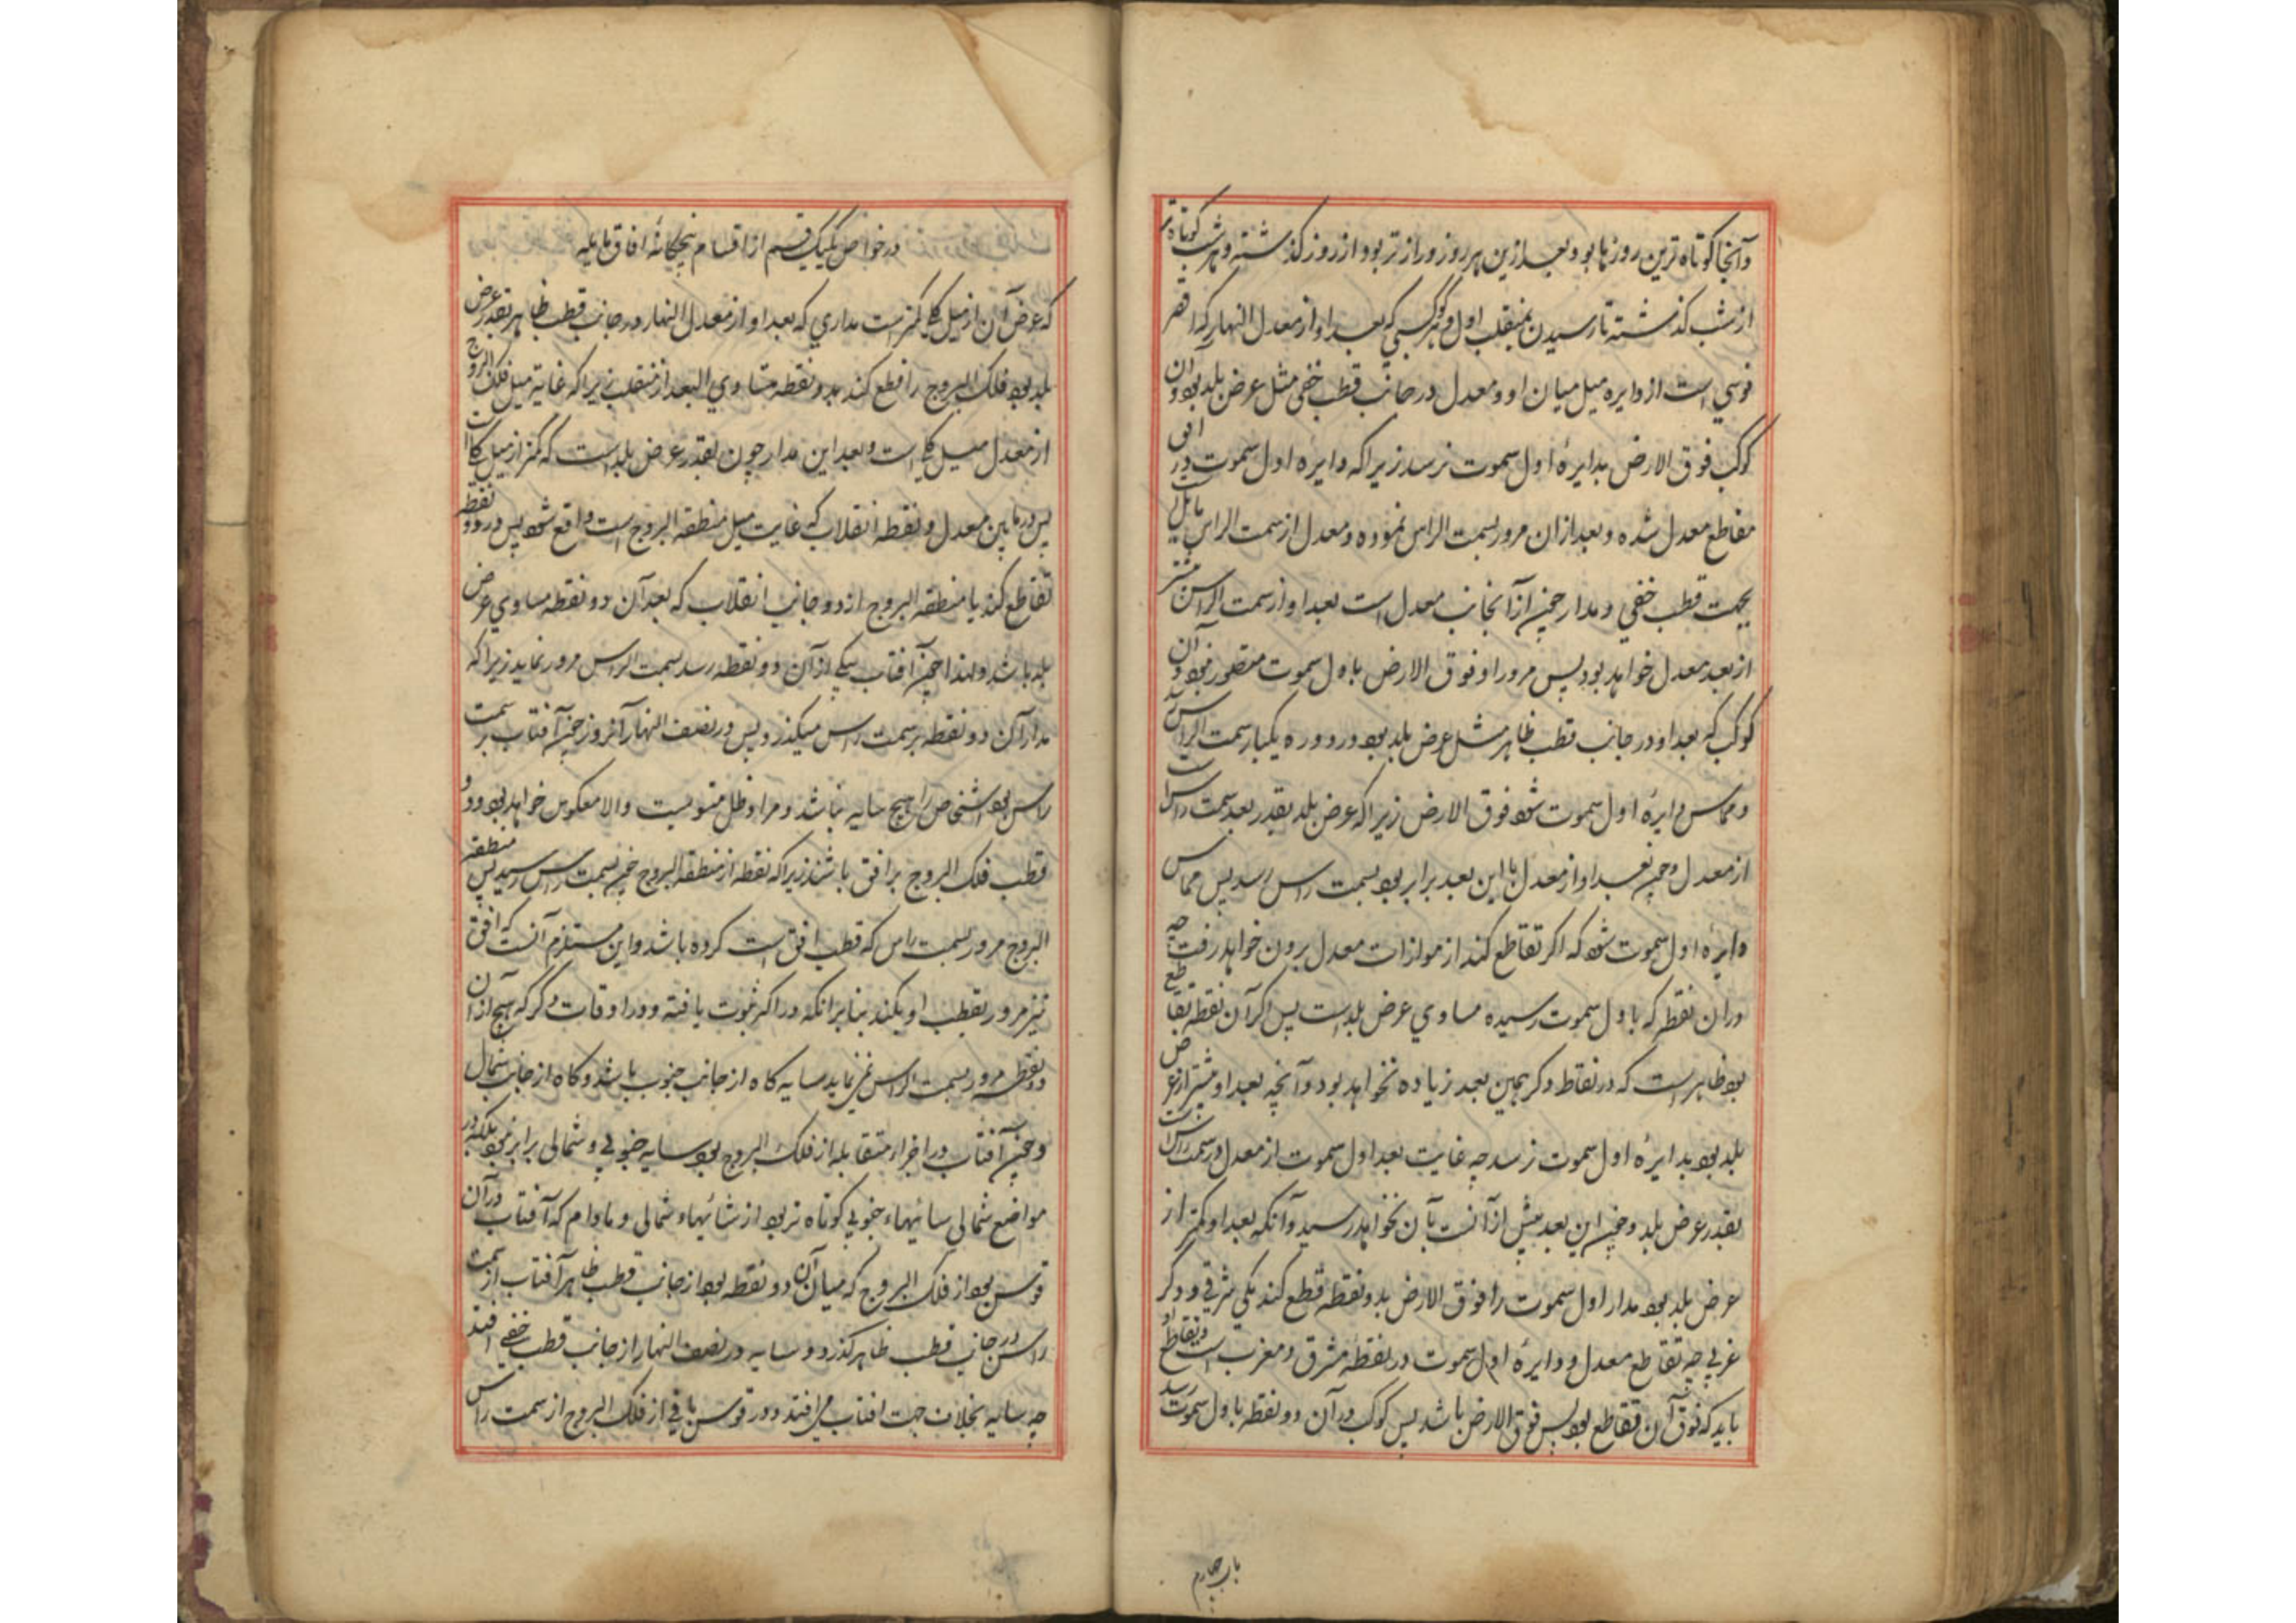 وآنجا کوتاه ترین روزها بود و بعد ازین هر روز درازتر بود از روز گذشته و هر شب کوتاه تر
از شب گذشته تا رسیدن بمنقلب اول و هر کوکبی که بعد او از معدل النهار که اقصر
قوسی است از دایره میل میان او و معدل در جانب قطب خفی مثل عرض بلد بود آن
کوکب فوق الارض بدایرهٔ اول سموت نرسد زیرا که دایره اول سموت در افق
مقاطع معدل شده و بعد ازان مرور بسمت الراس نموده و معدل از سمت الراس مایل
بجهت قطب خفی و مدار چون ازآنجانب معدل است بعد او از سمت الراس بیشتر
از بعد معدل خواهد بود پس مرور او فوق الارض باول سموت متصور نبود و آن
کوکب که بعد او در جانب قطب ظاهر مثل عرض بلد بود در دوره یکبار بسمت الراس
و مماس دایرهٔ اول سموت شود فوق الارض زیرا که عرض بلد بقدر بعد سمت راس است
از معدل و چون بعد او از معدل با این بعد برابر بود بسمت راس رسد پس مماس
دایرهٔ اول سموت شود که اگر تقاطع کند از موازات معدل برون خواهد رفت چه
دران نقطه که باول سموت رسیده مساوی عرض بلد است پس اگر آن نقطه تقاطع
بود ظاهر است که در نقاط دگر همین بعد زیاده نخواهد بود و آنچه بعد او بیشتر از عرض
بلد بود بدایرهٔ اول سموت نرسد چه غایت بعد اول سموت از معدل در سمت راس است
بقدر عرض بلد و چون این بعد بیش ازآنست بآن نخواهد رسید و آنکه بعد او کمتر از
عرض بلد بود مدار اول سموت را فوق الارض بدو نقطه قطع کند یکی شرقی و دگر
غربی چه تقاطع معدل و دایرهٔ اول سموت در نقطهٔ مشرق و مغرب است و تقاطع او
باید که فوق آن تقاطع بود پس فوق الارض باشد پس کوکب در آن دو نقطه باول سموت رسد
باب چهارم
در خواص یکیک قسم از اقسام پنجگانهٔ افاق مایله
که عرض آن از میل کلی کمتر است مداری که بعد او از معدل النهار در جانب قطب ظاهر بقدر عرض
بلد بود فلک البروج را قطع کند بدو نقطه متساوی البعد از منقلب زیرا که غایة میل فلک البروج
از معدل میل کلی است و بعد این مدار چون بقدر عرض بلد است که کمتر از میل کلی است
پس در مابین معدل و نقطه انقلاب که غایت میل منطقه البروج است واقع شود پس در دو نقطه
تقاطع کند با منطقه البروج از دو جانب انقلاب که بعد آن دو نقطه مساوی عرض
بلد باشد و لهذا چون آفتاب بیکی از آن دو نقطه رسد بسمت الراس مرور نماید زیرا که
مدار آن دو نقطه بر سمت راس میگذرد پس در نصف النهار آنروز چون آفتاب بر سمت
راس بود اشخاص را هیچ سایه نباشد و مراد ظل مستویست والا معکوس خواهد بود و دو
قطب فلک البروج بر افق باشند زیرا که نقطه از منطقه البروج چون بسمت راس رسید پس منطقه
البروج مرور بسمت راس که قطب افق است کرده باشد و این مستلزم آنست که افق
نیز مرور بقطب او بکند بنا برانکه در اکر ثبوت یافته و در اوقات دگر که هیچ از آن
دو نقطه مرور بسمت الراس نمی نماید سایه گاه از جانب جنوب باشد و گاه از جانب شمال
و چون آفتاب در اجزاء متقابله از فلک البروج بود سایه جنوبی و شمالی برابر نبود بلکه در
مواضع شمالی سایهاء جنوبی کوتاه تر بود از سایهاء شمالی و مادام که آفتاب در آن
قوس بود از فلک البروج که میان آن دو نقطه بود از جانب قطب ظاهر آفتاب از سمت
راس در جانب قطب ظاهر گذرد و سایه در نصف النهار از جانب قطب خفی افتد
چه سایه بخلاف جهت افتاب می افتد و در قوس باقی از فلک البروج از سمت راس